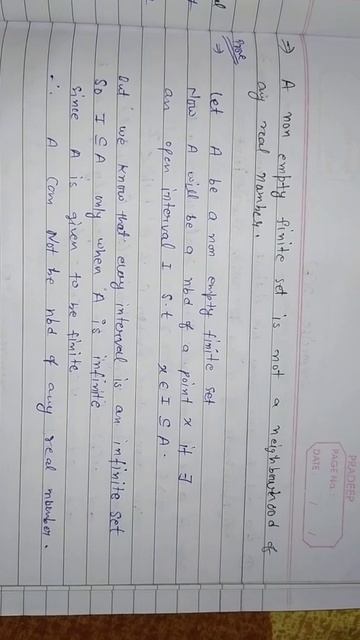 PRADEEP
PAGE No.
DATE / /
⇒ A non empty finite set is not a neighbourhood of
any real number.
Proof
⇒ Let A be a non empty finite set
Now A will be a nbd of a point x if ∃
an open interval I s.t x ∈ I ⊆ A.
but we know that every interval is an infinite set
So I ⊆ A only when A is infinite
Since A is given to be finite
∴ A Can Not be nbd of any real number.